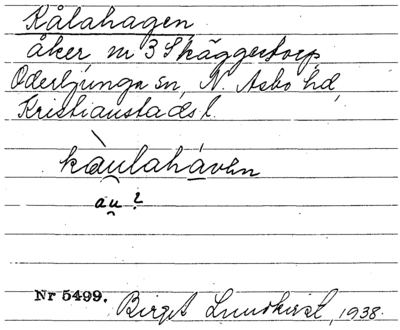 Kålahagen,
åker, nr 3 Skäggestorp,
Oderljunga sn, N. Åsbo hd,
Kristianstads l.
kàulahávhn
au ?
Nr 5499. Birgit Lundkvist, 1938.